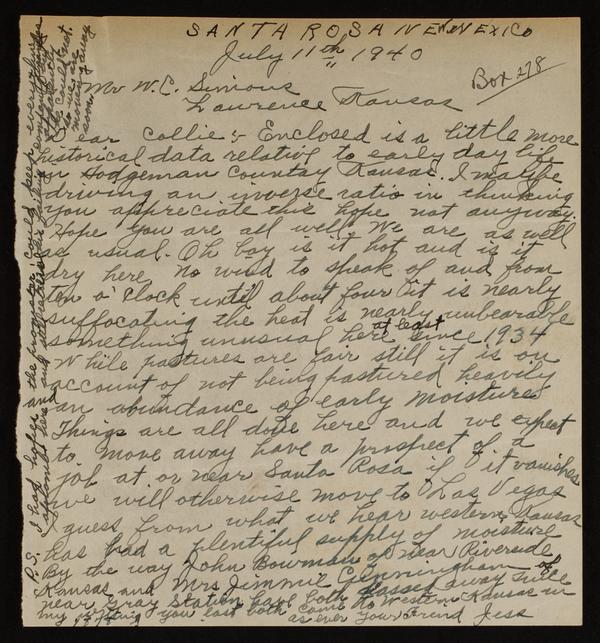 SANTA ROSA NEW MEXICO
July 11th 1940
Box 278
Mr W.C. Simons
Lawrence Kansas
ear Collie:- Enclosed is a little more
historical data relative to early day life
in Hodgeman Countay Kansas. I maybe
driving an inverse ratio in thinking
you appreciate this hope not anyway.
Hope you are all well. We are as well
as usual. Oh boy is it hot and is it
dry here no wind to speak of and from
ten o'clock until about four it is nearly
suffocating the heat is nearly unbearable
something unusual here at least since 1934
While pastures are fair still it is on
account of not being pastured heavily
and an abundance of early moisture.
Things are all done here and we expect
to move away have a prospect of a
job at or near Santa Rosa if it vanishes
we will otherwise move to Las Vegas
I guess from what we hear western Kansas
has had a plentiful supply of moisture
By the way John Bowman of near Riverside
Kansas and Mrs Jimmie Genningham of
near Gray Station have both passed away since
my writing you last both came to Western Kansas in
as ever your friend Jess
P.S. I had hopes the promoter could keep everything